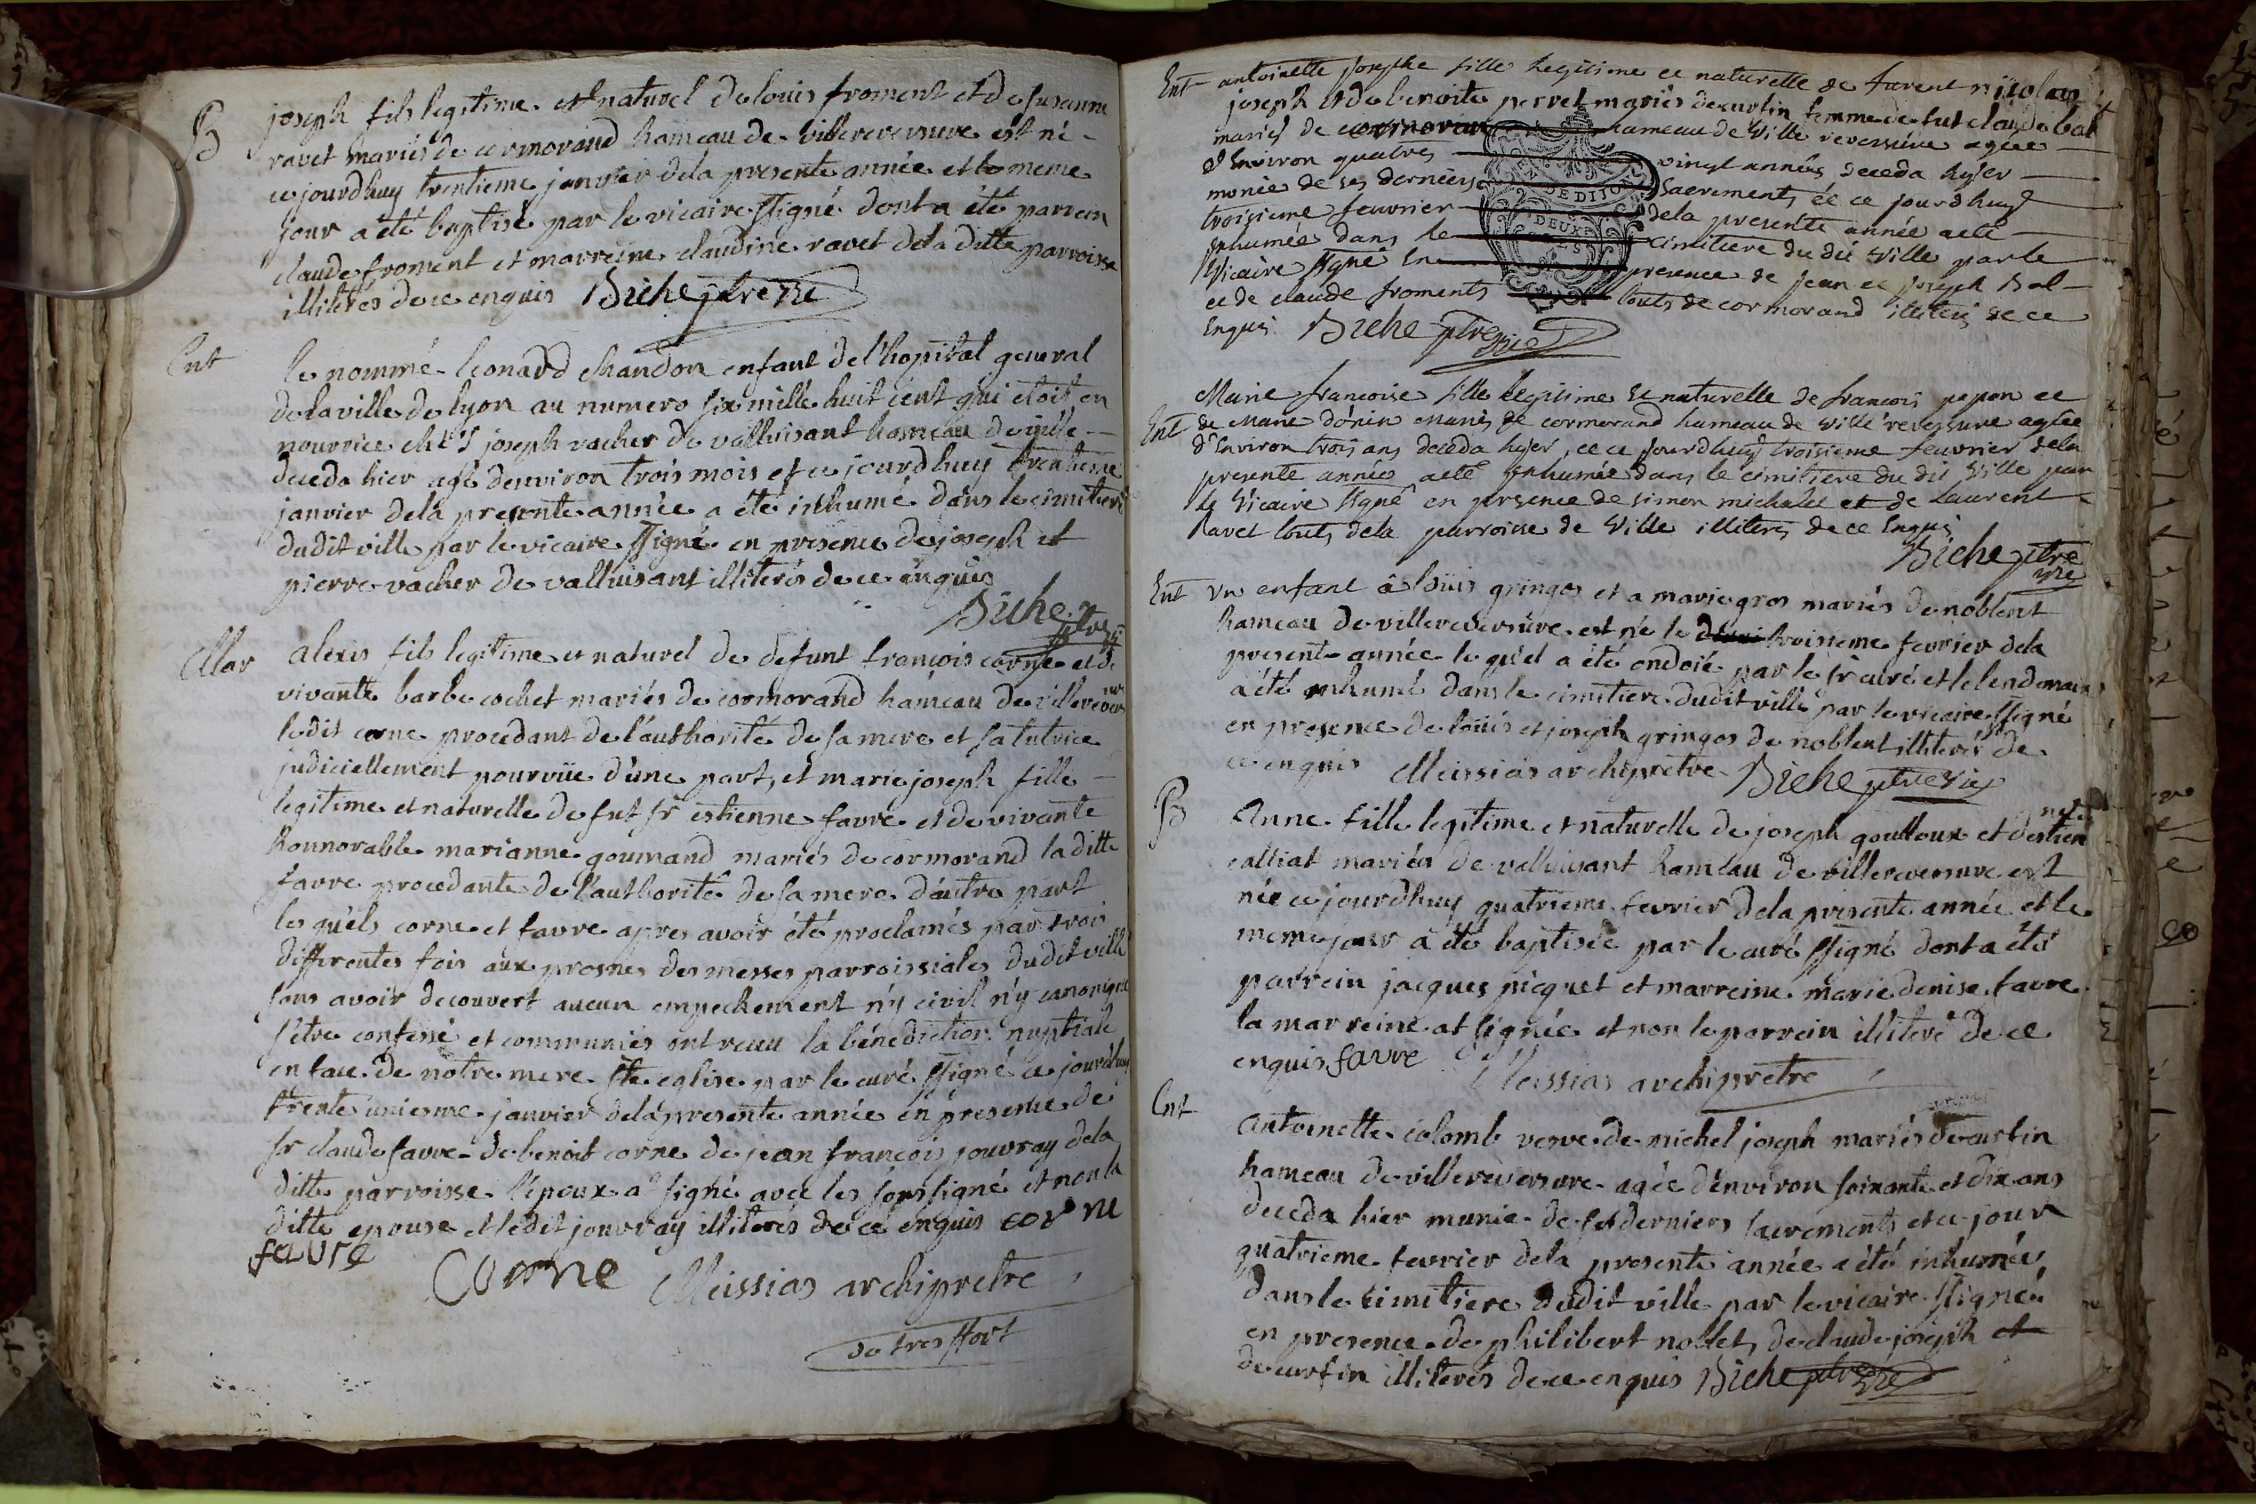 B
joseph fils legitime et naturel de louis froment et de susanne
ravet mariés de cormorand hameau de villereversure est né
ce jourdhuy trentieme janvier dela presente année et le meme
jour a été baptisé par le vicaire ssigné dont a été parrein
claude froment et marreine claudine ravet dela ditte parroisse
illiterés de ce enquis Biche ptre vre
Ent
le nommé leonard chandon enfant de l'hopital general
de la ville de lyon au numero six mille huit cent qui etoit en
nourrice chés joseph vacher de valluisant hameau de ville
deceda hier agé denviron trois mois et ce jourdhuy trentieme
janvier dela presente année a été inhumé dans le cimitiere
dudit ville par le vicaire ssigné en presence de joseph et
pierre vacher de valluisant illiterés de ce enquis
Biche ptre
Mar
alexis fils legitime et naturel de defunt françois corne et de
vivante barbe cochet mariés de cormorand hameau de villerever
ledit corne procedant de l'authorité de sa mere et sa tutrice
judiciellement pourvüe d'une part, et marie joseph fille
legitime et naturelle de fut sr estienne favre et de vivante
honnorable marianne goumand mariés de cormorand la ditte
favre procedante de l'authorité de sa mere d'autre part
les quels corne et favre apres avoir été proclamés par trois
differentes fois aux prosnes des messes parroissiales dudit ville
sans avoir decouvert aucun empechement n'y civil n'y canonique
s'etre confessé et communiés ont recu la bénediction nuptiale
en face de notre mere ste eglise par le curé ssigné ce jourdhuy
trente unieme janvier dela presente année en presence de
sr claude favre de benoit corne de jean françois jouvray dela
ditte parroisse l'epoux a signé avec les soussigné et non la
ditte epouse et ledit jouvray illiterés de ce enquis corne
favre
Corne Meissias archiprêtre
de tressfort
Ent antoinette josephe fille legitime et naturelle de furent nicolas
joseph et de benoite perret mariés de curfin femme de fut claude bal
mariés de cormoran hameau de Ville reversure agée
d'Environ quatres vingt années deceda hyer
monie de ses derniers Sacrements et ce jourdhuy
troisieme feuvrier dela presente année aeté
inhumée dans le cimitiere du dit Ville par le
Vicaire ssigné En presence de jean et joseph Bal
et de claude froments touts de cormorand illiteres de ce
Enquis Biche ptre vre
Ent
Marie francoise fille legitime Et naturelle de francois pepon et
de Marie donin Mariés de cormorand hameau de Ville reversure agée
d'Environ trois ans deceda hyer, et ce jourdhuy troisieme feuvrier dela
presente année aeté inhumée dans le cimitiere du dit Ville par
le Vicaire ssigné en presence de simon michalet et de Laurent
Ravet touts dela parroisse de Ville illiteres de ce Enquis
Biche ptre
vre
Ent
un enfant à loüis gringos et a marie gros mariés de noblent
hameau de villereversure est né le troisieme fevrier dela
present année le quel a été ondoié par le sr curé et le lendemain
a été inhumé dans le cimitiere dudit ville par le vicaire ssigné
en presence de loüis et joseph gringos de noblent illiterés de
ce enquis Meissias archiprêtre Biche ptre vre
B
Anne fille legitime et naturelle de joseph goulloux et destien
nete
calliat mariés de valluisant hameau de villereversure est
née ce jourdhuy quatrieme fevrier dela presente année et le
meme jour a été baptisée par le curé ssigné dont a été
parrein jacques picquet et marreine marie denise favre
la marreine at signée et non le parrein illiteré de ce
enquis favre Meissias archiprêtre
Ent
Antoinette colomb verve de michel joseph mariés de curfin
hameau de villereversure agée d'environ soixante et dix ans
deceda hier munie de ses derniers sacrements et ce jour
quatrieme fevrier dela presente année a été inhumée
dans le cimitiere dudit ville par le vicaire ssigné
en presence de philibert nollet, de claude joseph et
de curfin illiterés de ce enquis Biche ptre vre